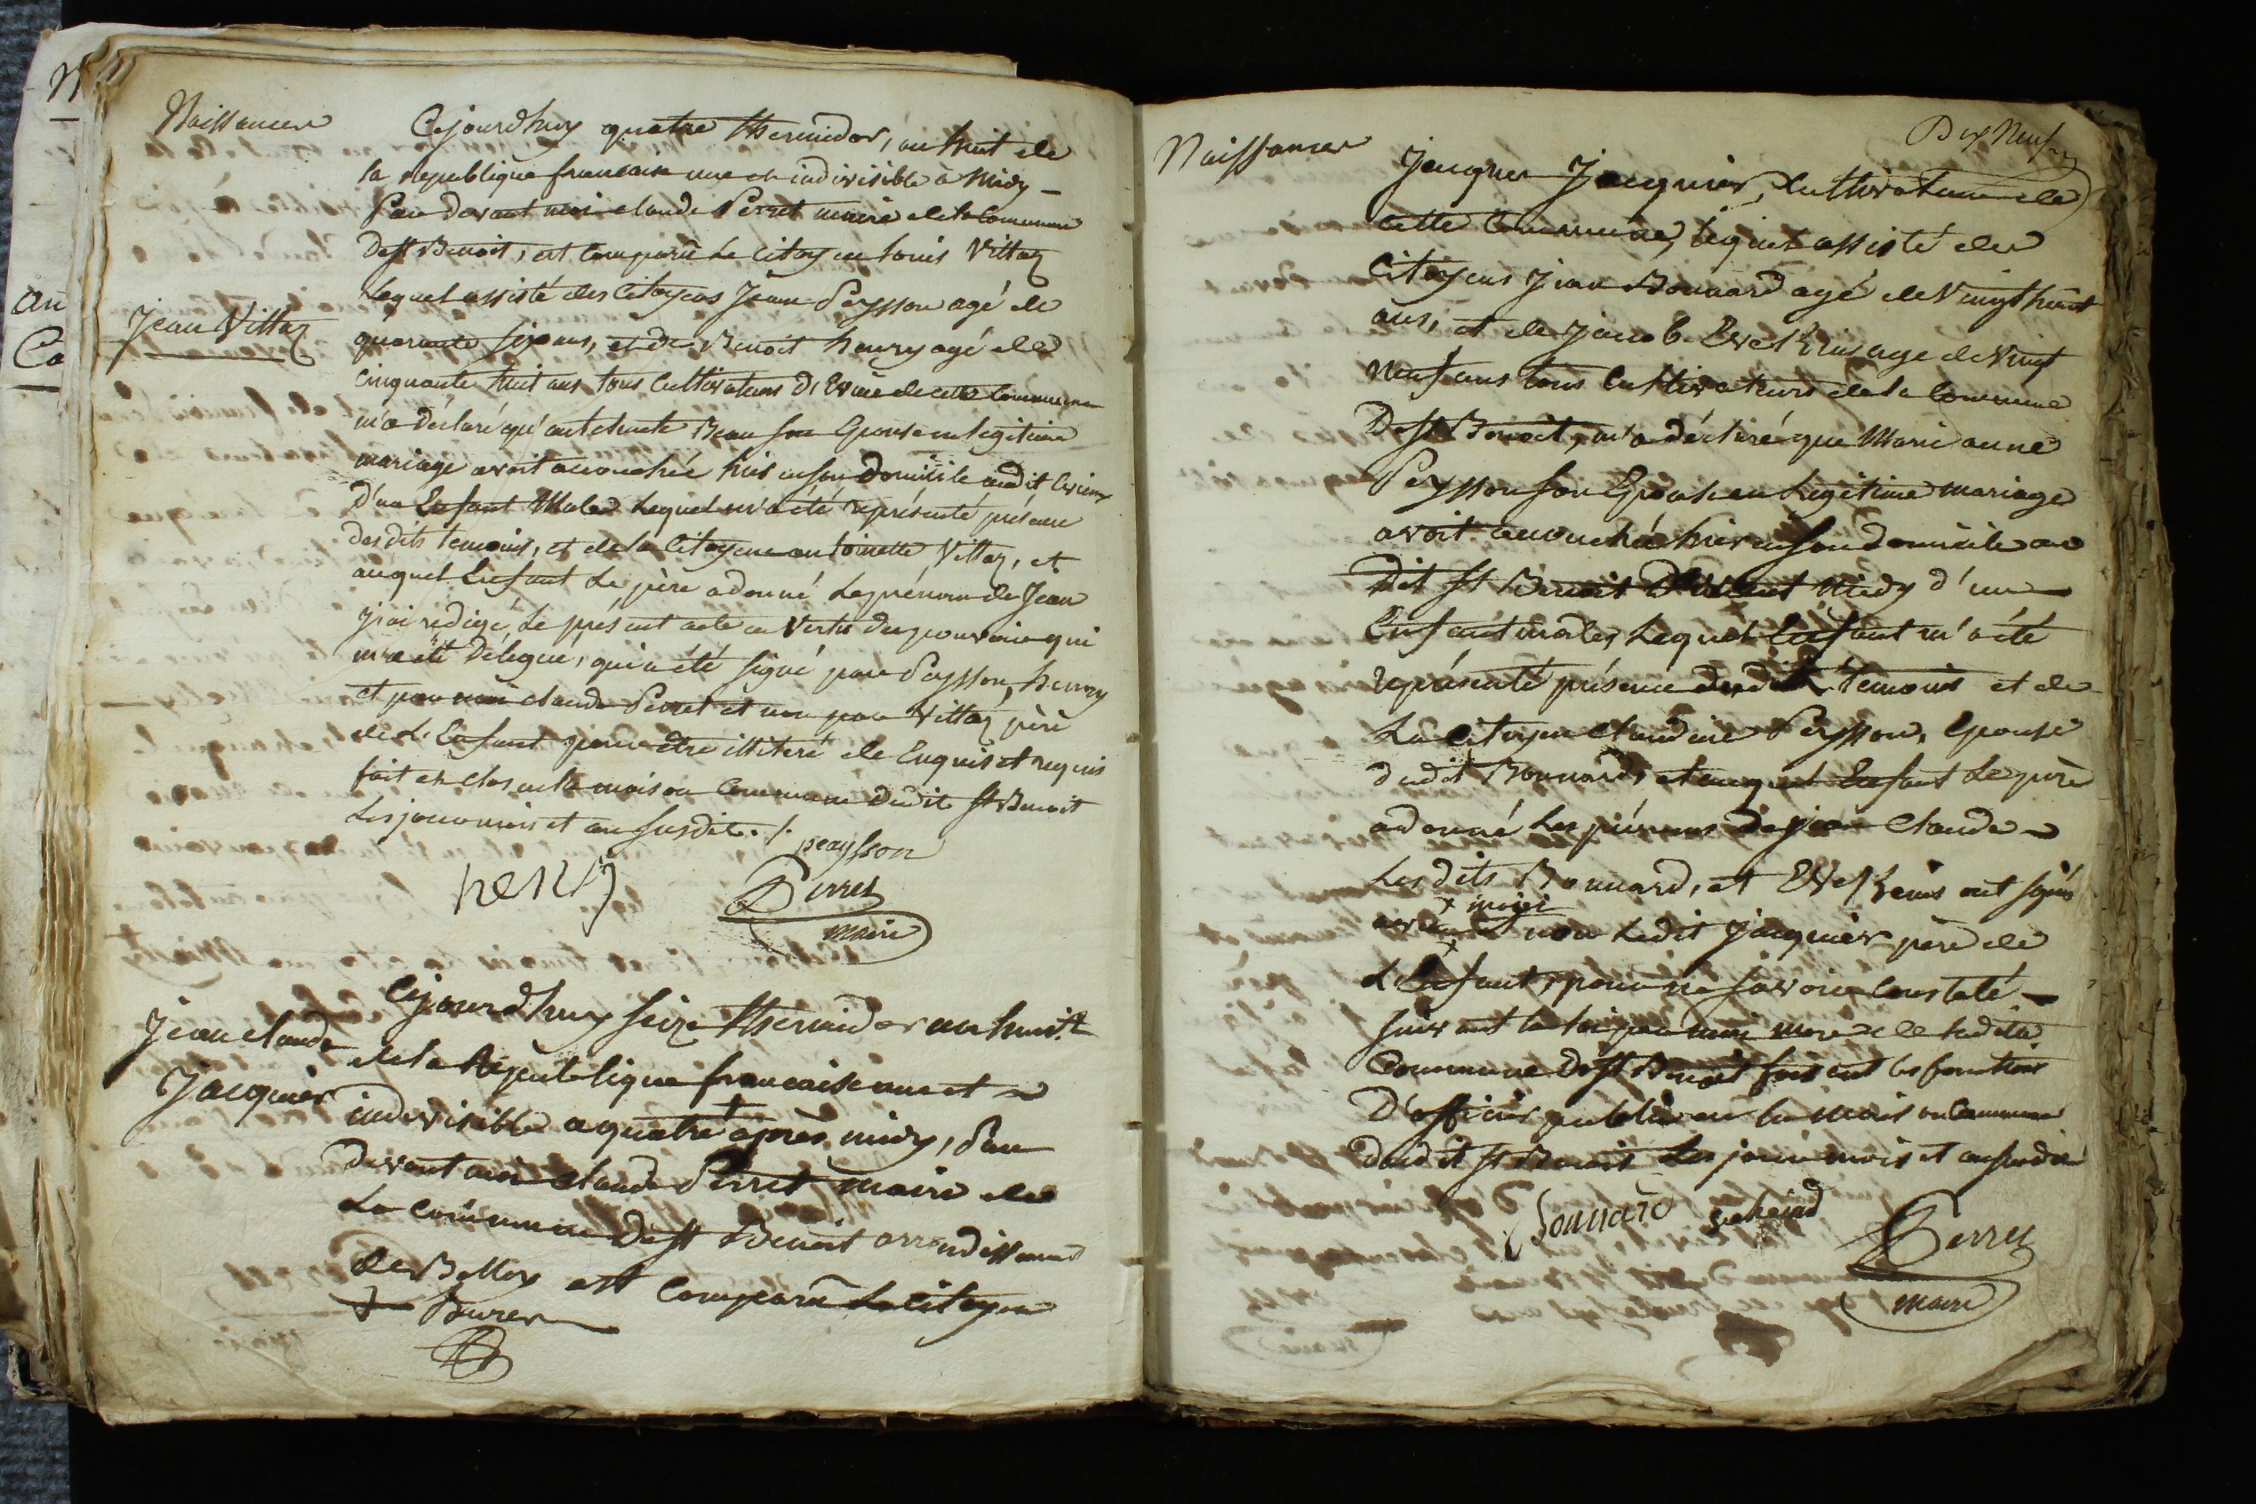 Naissances
Cejourdhuy quatre thermidor, an huit de
la republique francaise une et indivisible à Midy
Par devant moi claude Perret maire de la Commune
de st Benoit, est Comparu le Citoyen Louis Vittoz
Lequel assisté des Citoyens Jean Peysson agé de
Jean Vittoz
quarante six ans, et de Benoit henry agé de
Cinquante huit ans tous Cultivateurs d'Evieu de cette Commune
m'a déclaré qu'antelmete Beau son Epouse en legitime
mariage avoit accouchée hier en son domicile audit Evieux
d'un Enfant Male Lequel m'a été représenté présence
desdits temoins, et de la Citoyene antoinette Vittoz, et
auquel Enfant Le père a donné Le prénom de Jean
j'ai redigé Le présent acte en Vertu des pouvoirs qui
m'a été Délegué, qui a été signé par Peysson, henry
et par moi claude Perret et non par Vittoz père
de L'Enfant pour être illiteré de Enquis et requis
fait et clos en la maison Commune dudit st Benoit
Les jour mois et an susdit ./.
peaysson
henry
Perret
maire
Jean claude
Jacquier
Cejourdhuy seize thermidor an huit
de la Republique francaise une et
indivisible a quatre après midy, Par
devant moi claude Perret maire de
La Commune de st Benoit arrondissement
de Belley est Comparu Le Citoyen
Naissances
Dix Neuf
Jacques Jacquier, Cultivateur de
cette Commune, Lequel assisté des
Citoyens Jean Bonnard agé de Vingt huit
ans, et de Jacob age de Vingt
Neuf ans tous Cultivateurs de la Commune
De st Benoit, m'a déclaré que Marie anne
Peysson son Epouse en Legitime mariage
avoit accouchée hier en son domicile au
dit st Benoit Midy d'un
Enfant male, Lequel Enfant m'a été
représenté présence desdits témoins et de
La Citoyene Claudine Peysson, Epouse
dudit Bonnard, et auquel Enfant Le père
a donné Les prénoms de jean Claude
Lesdits Bonnard, et ont signés
moi
avec non Ledit Jacquier père de
L'Enfant, pour ne savoir Constaté
suivant la loi par moi maire de ladite
Commune De st Benoit faisant les fonctions
D'officier public en la maison Commune
dudit st Benoit Les jour mois et an susdit
Bonnard
Perret
maire